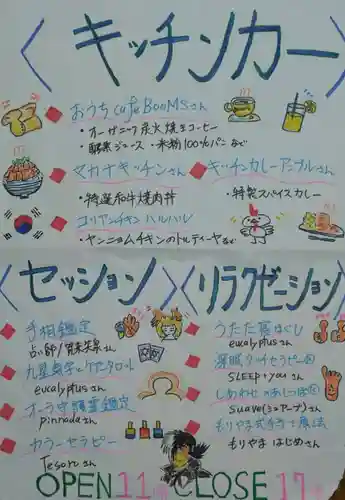 キッチンカー
おうちcafe BooMSさん
・オーガニック炭火焼きコーヒー
・酵素ジュース ・米粉100%パン など
マカナキッチンさん
・特選和牛焼肉丼
キッチンカレーアンプルさん
・特製スパイスカレー
コリアンチキン ハルハル
・ヤンニョムチキンのトルティーヤなど
セッション
手相鑑定
占い師/
eucalyptusさん
オーラ守護霊鑑定
pinnadaさん
カラーセラピー
Tesoroさん
リラクゼーション
うたた寝ほぐし
eucalyptusさん
深眠タッチセラピー
SLEEP+youさん
しあわせ
suave(スアーブ)さん
もりやま式手
もりやま はじめさん
OPEN 11
CLOSE 17